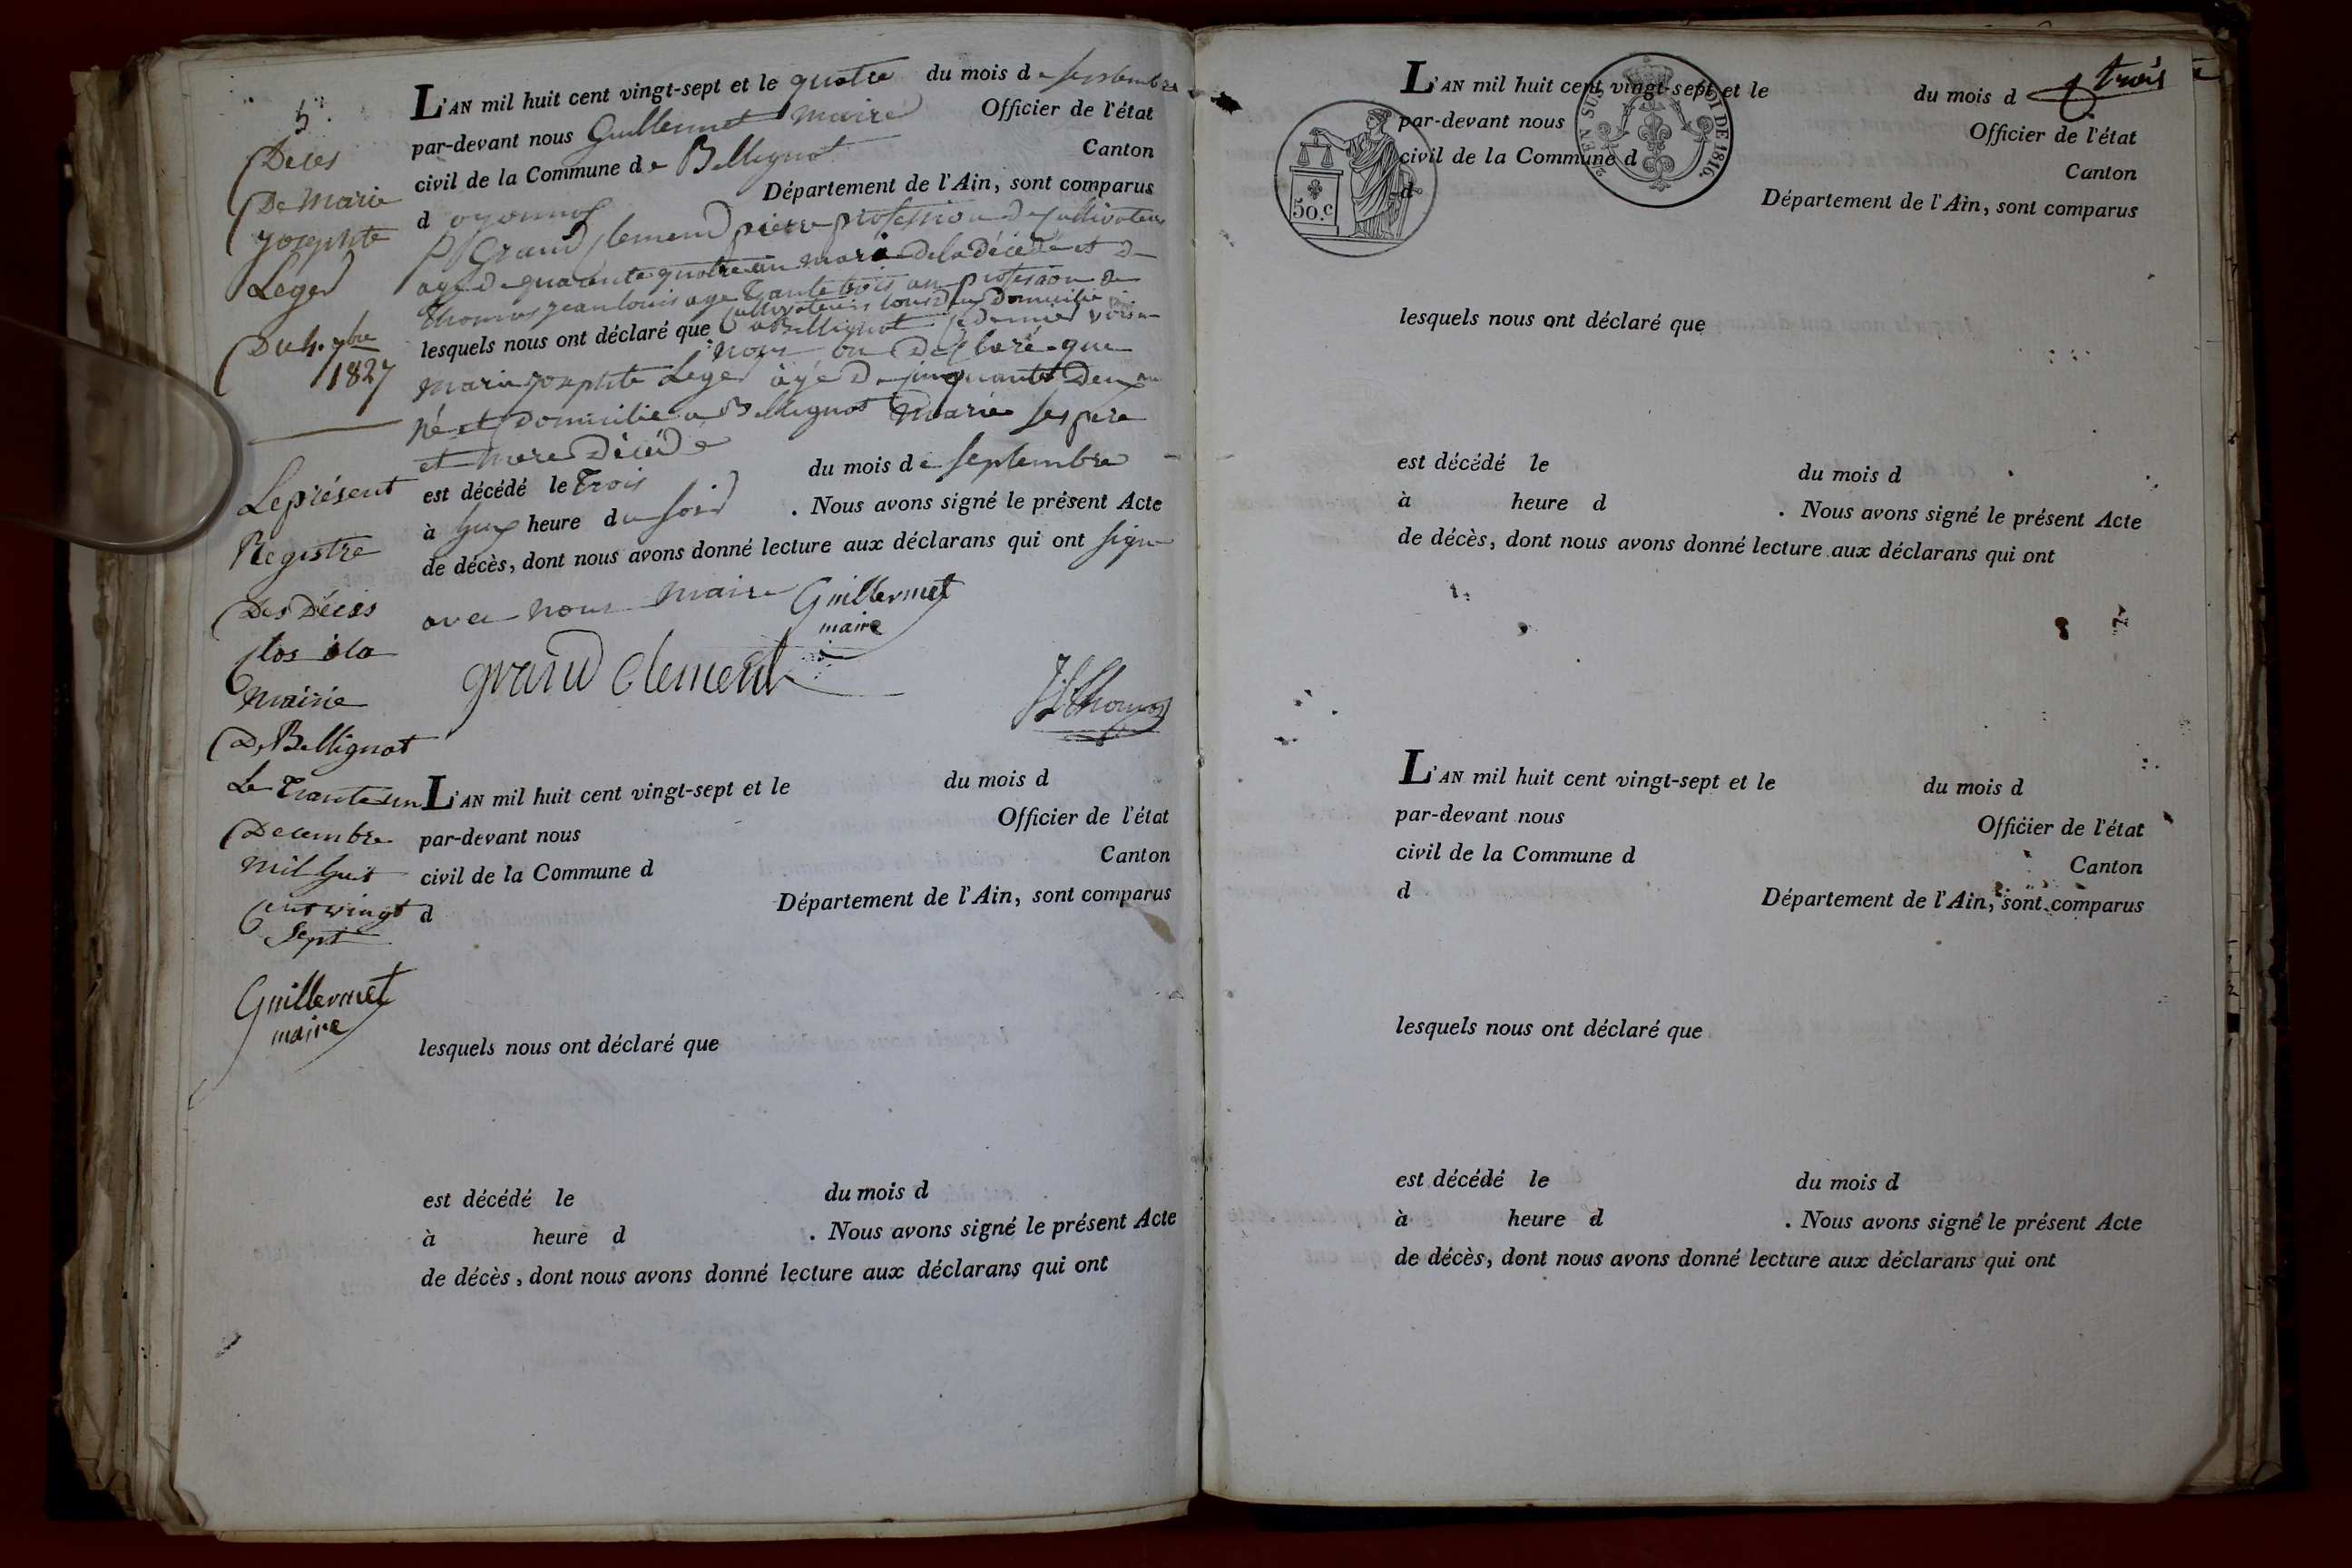 5.
Deces
De Marie
Josephte
Leger
Du 4. 7bre
1827
Le présent
Registre
Des Décès
Clos à la
Mairie
De Bellignat
Le Trante un
Decembre
Mil huit
Cent vingt
Sept
Guillermet
maire
L'AN mil huit cent vingt-sept et le quatre du mois de septembre
par-devant nous Guillermet Maire Officier de l'état
civil de la Commune de Bellignat Canton
d oyonnas Département de l'Ain, sont comparus
Grand Clement pierre profession de Cultivateur
agé de quarante quatre an mari de la décédé et de
Thomas jean louis age trante trois an profession de
Cultivateur tous deux Domicilié
lesquels nous ont déclaré que a Bellignat Ce dernier voisin
nous on Declaré que
Marie josephte Leger àgé De Cinquante Deux an
né et Domicilié a Bellignat Marié ses pere
et Mere Décédé
est décédé le Trois du mois de Septembre
à huit heure du soir . Nous avons signé le présent Acte
de décès, dont nous avons donné lecture aux déclarans qui ont signé
avec nous Maire Guillermet
maire
grand Clement
JL Thomas
L'AN mil huit cent vingt-sept et le du mois d
par-devant nous Officier de l'état
civil de la Commune d Canton
d Département de l'Ain, sont comparus
lesquels nous ont déclaré que
est décédé le du mois d
à heure d . Nous avons signé le présent Acte
de décès, dont nous avons donné lecture aux déclarans qui ont
trois
L'AN mil huit cent vingt-sept et le du mois d
par-devant nous Officier de l'état
civil de la Commune d Canton
d Département de l'Ain, sont comparus
50.c
EN SUS
LOI DE 1816.
lesquels nous ont déclaré que
est décédé le du mois d
à heure d . Nous avons signé le présent Acte
de décès, dont nous avons donné lecture aux déclarans qui ont
L'AN mil huit cent vingt-sept et le du mois d
par-devant nous Officier de l'état
civil de la Commune d Canton
d Département de l'Ain, sont comparus
lesquels nous ont déclaré que
est décédé le du mois d
à heure d . Nous avons signé le présent Acte
de décès, dont nous avons donné lecture aux déclarans qui ont